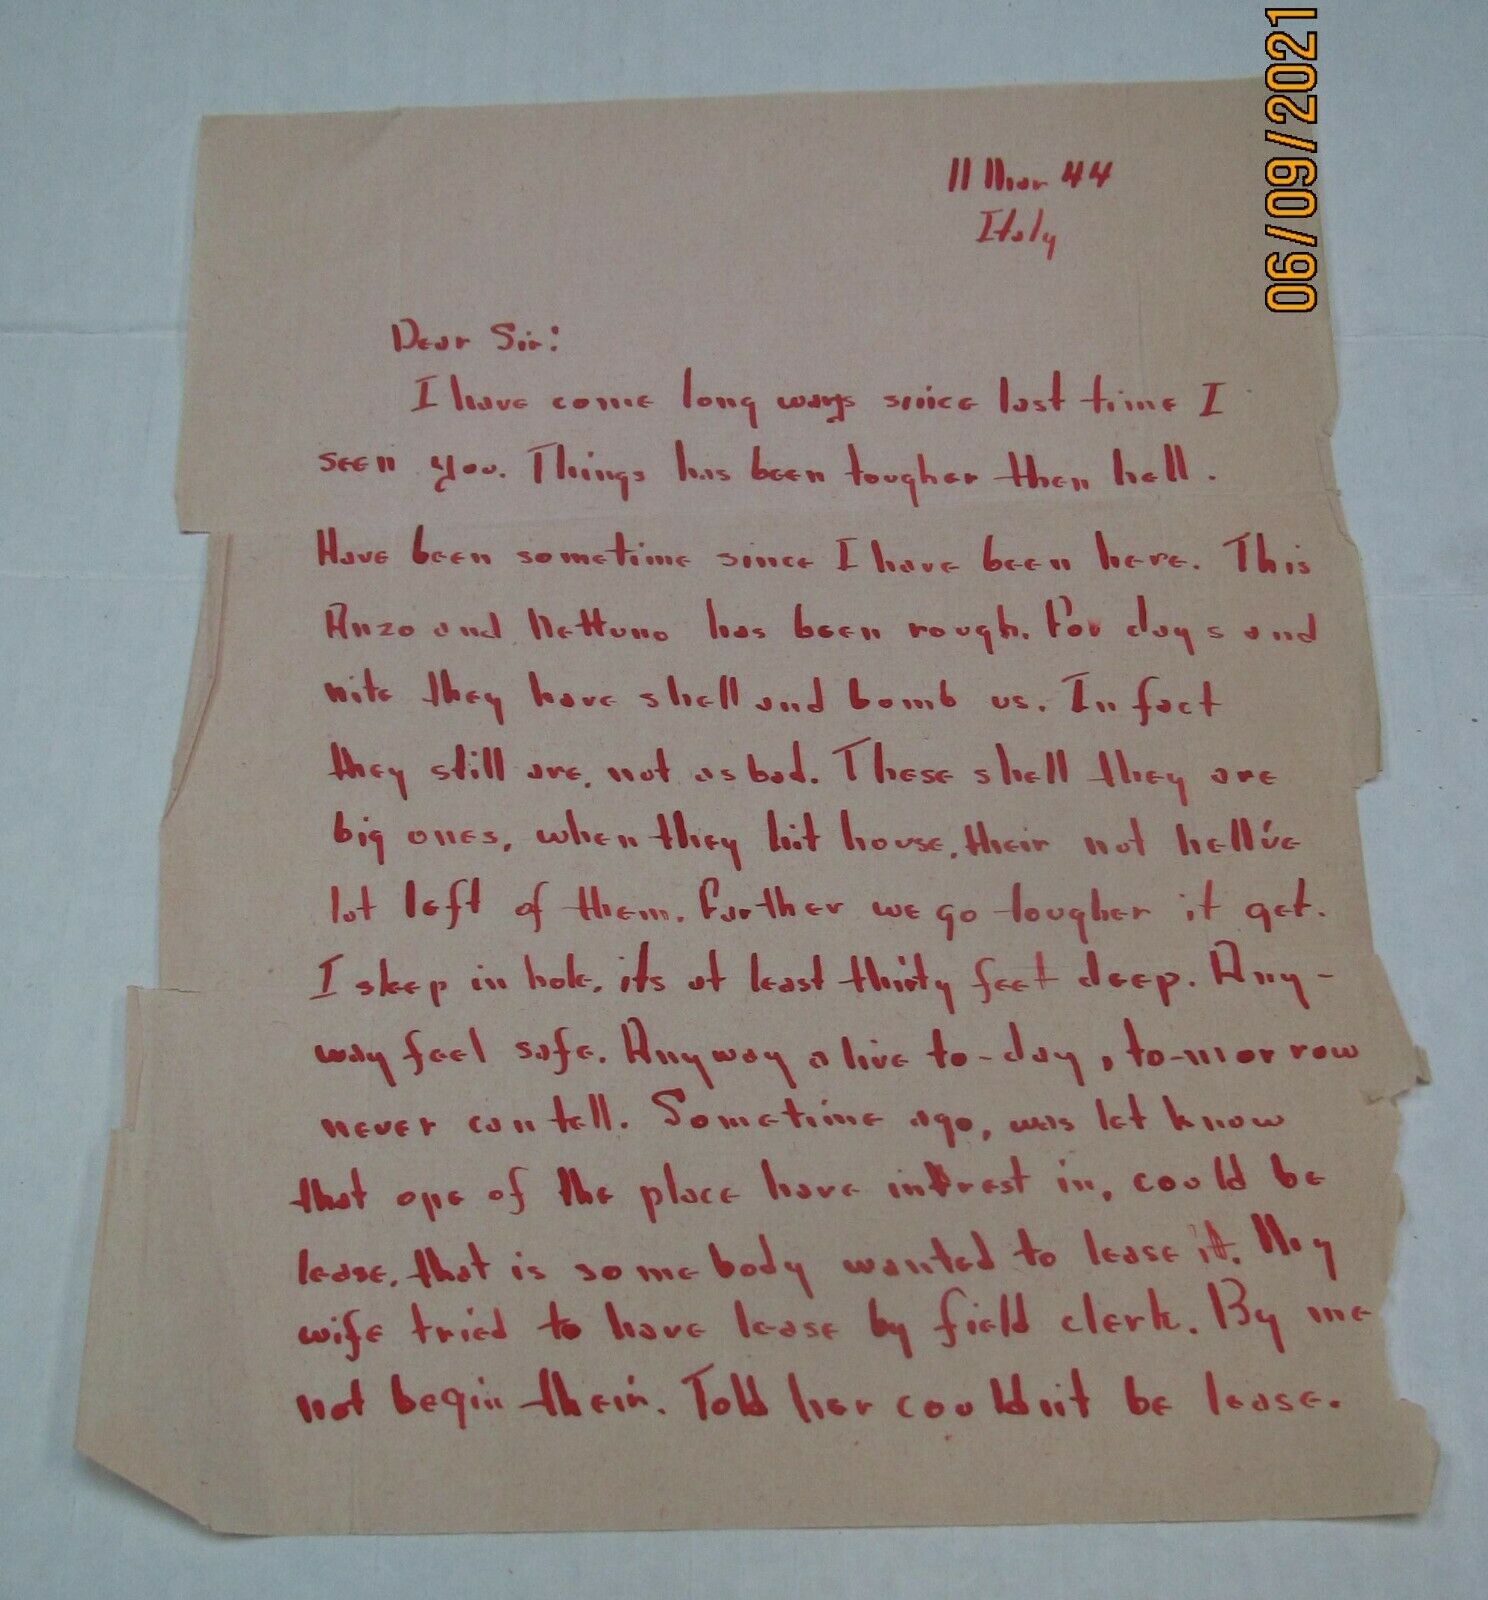 06/09/2021
11 Mar 44
Italy
Dear Sir:
I have come long ways since last time I
seen you. Things has been tougher then hell.
Have been sometime since I have been here. This
Anzo and Nettuno has been rough. For days and
nite they have shell and bomb us. In fact
they still are, not as bad. These shell they are
big ones, when they hit house, their not hell've
lot left of them. Further we go tougher it get.
I sleep in hole, its at least thirty feet deep. Any-
way feel safe. Anyway alive to-day, to-morrow
never can tell. Sometime ago, was let know
that one of the place have intrest in, could be
lease, that is somebody wanted to lease it. My
wife tried to have lease by field clerk. By me
not begin their. Told her couldnit be lease.